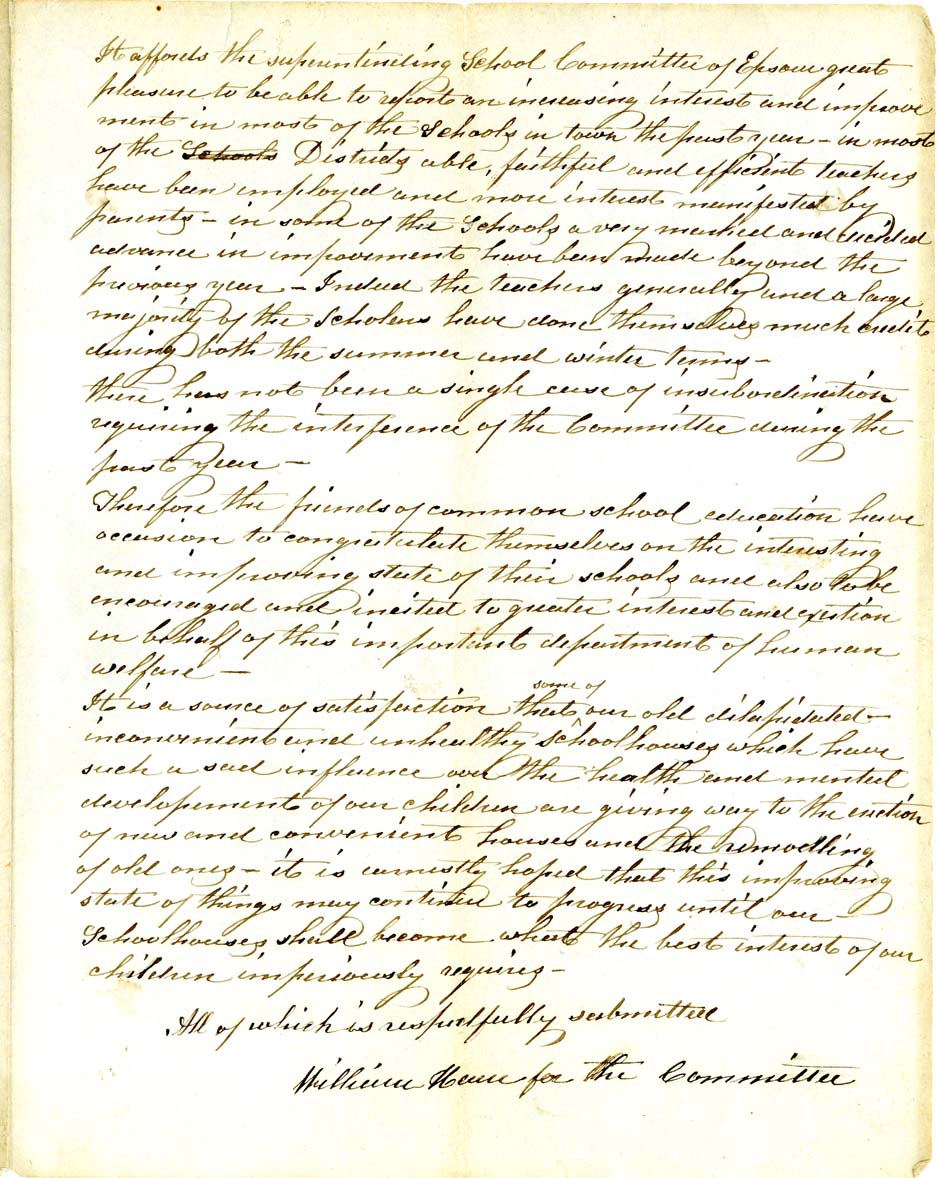 It affords the superintending School Committee of Epsom great
pleasure to be able to report an increasing interest and improve
ment in most of the Schools in town the past year – in most
of the Schools Districts able, faithful and efficient teachers
have been employed and more interest manifested by
parents – in some of the Schools a very marked and decided
advance in improvement have been made beyond the
previous year – Indeed the teachers generally and a large
majority of the Scholars have done themselves much credit
during both the summer and winter terms –
there has not been a single case of insubordination
requiring the interference of the Committee during the
past year –
Therefore the friends of common school education have
occasion to congratulate themselves on the interesting
and improving state of their schools and also to be
encouraged and incited to greater interest and exertion
in behalf of this important department of human
welfare –
some of
It is a source of satisfaction that our old dilapidated –
inconvenient and unhealthy schoolhouses which have
such a sad influence over the health and mental
developement of our children are giving way to the erection
of new and convenient houses and the remodling
of old ones – it is earnestly hoped that this improving
state of things may continue to progress until our –
Schoolhouses shall become what the best interest of our
children imperiously requires –
All of which is respectfully submitted
William for the Committee